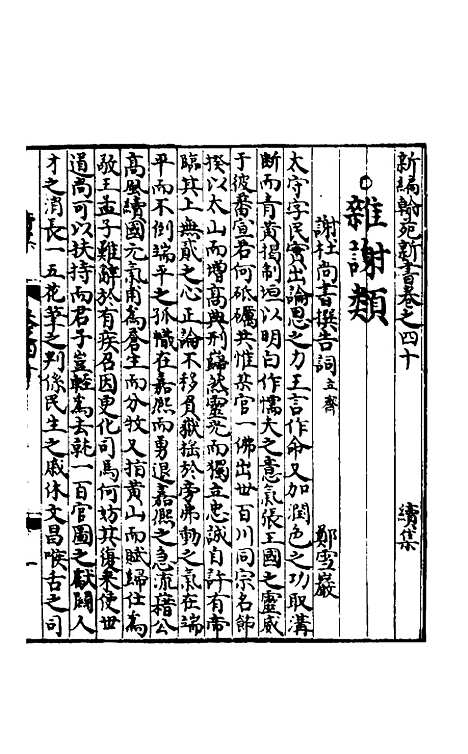 新編翰苑新書卷之四十　續集
雜謝類
謝杜尚書撰告詞　立齋　鄭雪巖
太守字民實出論思之力王言作命又加潤色之功取溝
斷而青黃揭制垣以明白作懦夫之意氣張王國之靈威
于彼番宣君何砥礪共惟某官一佛出世百川同宗名節
以太山而增高典刑歸然靈光而獨立忠誠自許有帝
臨其上無貳之心正論不移負嶽搖於旁弗動之氣在端
平而不倒瑞平之孤幟在嘉熙而勇退嘉熙之急流藉公
高風續國元氣甫為蒼生而分牧又指黃山而賦歸仕為
敬王孟子難辭於有疾召因更化司馬何妨其復來使世
道尚可以扶持而君子豈輕為去就一百官圖之獻關人
才之消長　五花草之判係民生之戚休文昌喉舌之司